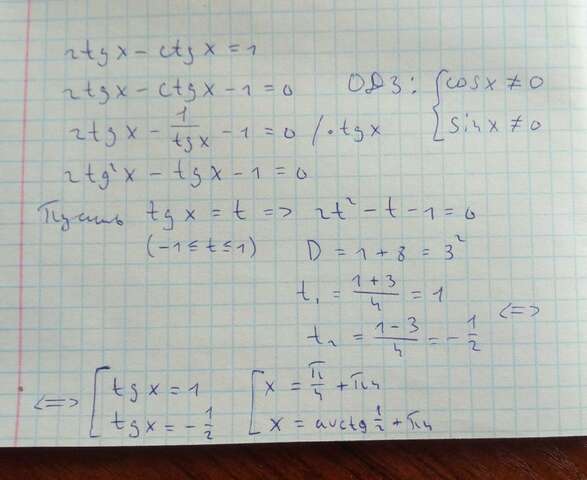 2tgx - ctgx = 1
2tgx - ctgx - 1 = 0 ОДЗ: { cosx ≠ 0
2tgx - 1/tgx - 1 = 0 /·tgx { sinx ≠ 0
2tg²x - tgx - 1 = 0
Пусть tgx = t => 2t² - t - 1 = 0
(-1 ≤ t ≤ 1) D = 1 + 8 = 3²
t₁ = (1+3)/4 = 1
t₂ = (1-3)/4 = -1/2 <=>
<=> [ tgx = 1 [ x = π/4 + πn
[ tgx = -1/2 [ x = arctg 1/2 + πn